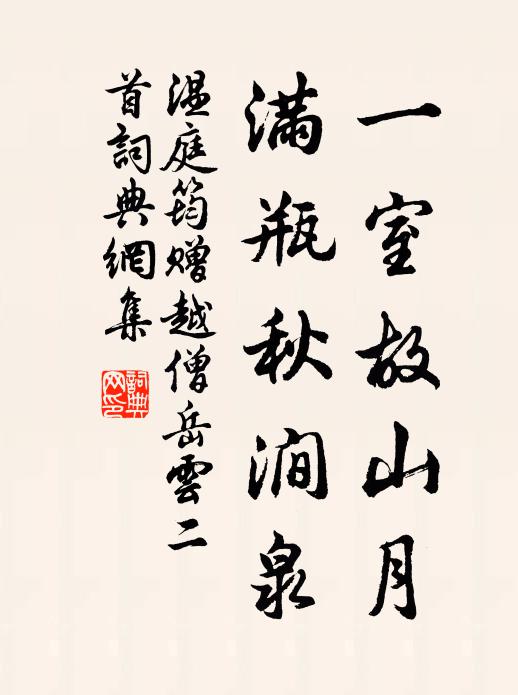 一室故山月
滿瓶秋澗泉
溫庭筠贈越僧岳雲二
首詞典網集
詞典
网印